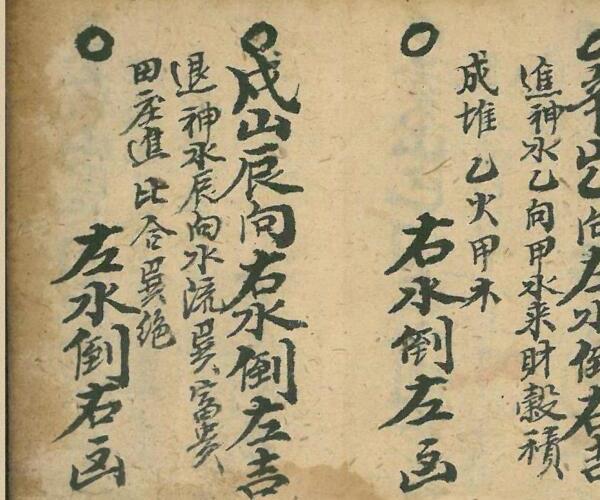 辛山乙向左水倒右吉
進神水乙向甲水来財穀積
成堆乙火甲木
右水倒左凶
戌山辰向右水倒左吉
退神水辰向水流巽富貴
田庄進比合巽绝
左水倒右凶